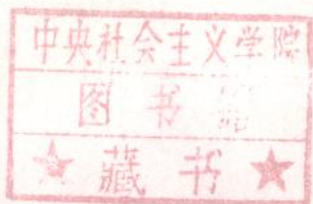 中央社会主义学院
图书馆
★藏书★